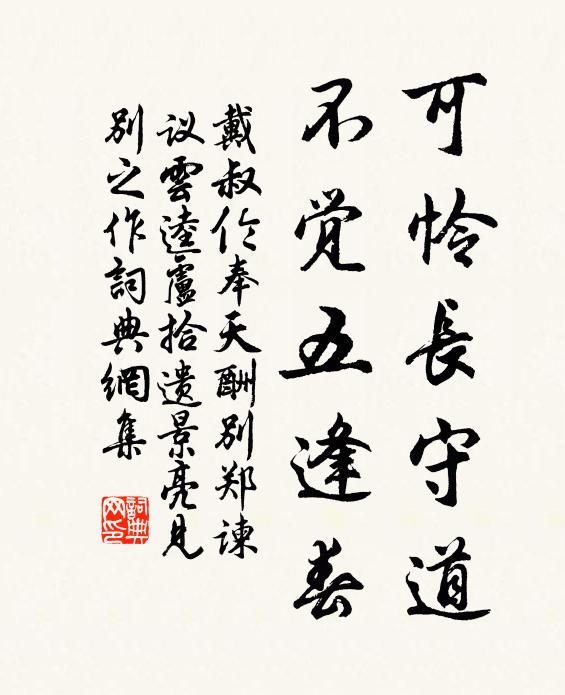 可怜長守道
不觉五逢春
戴叔伦奉天酬别郑谏
议雲逵盧拾遗景亮见
别之作詞典網集
詞典
网印